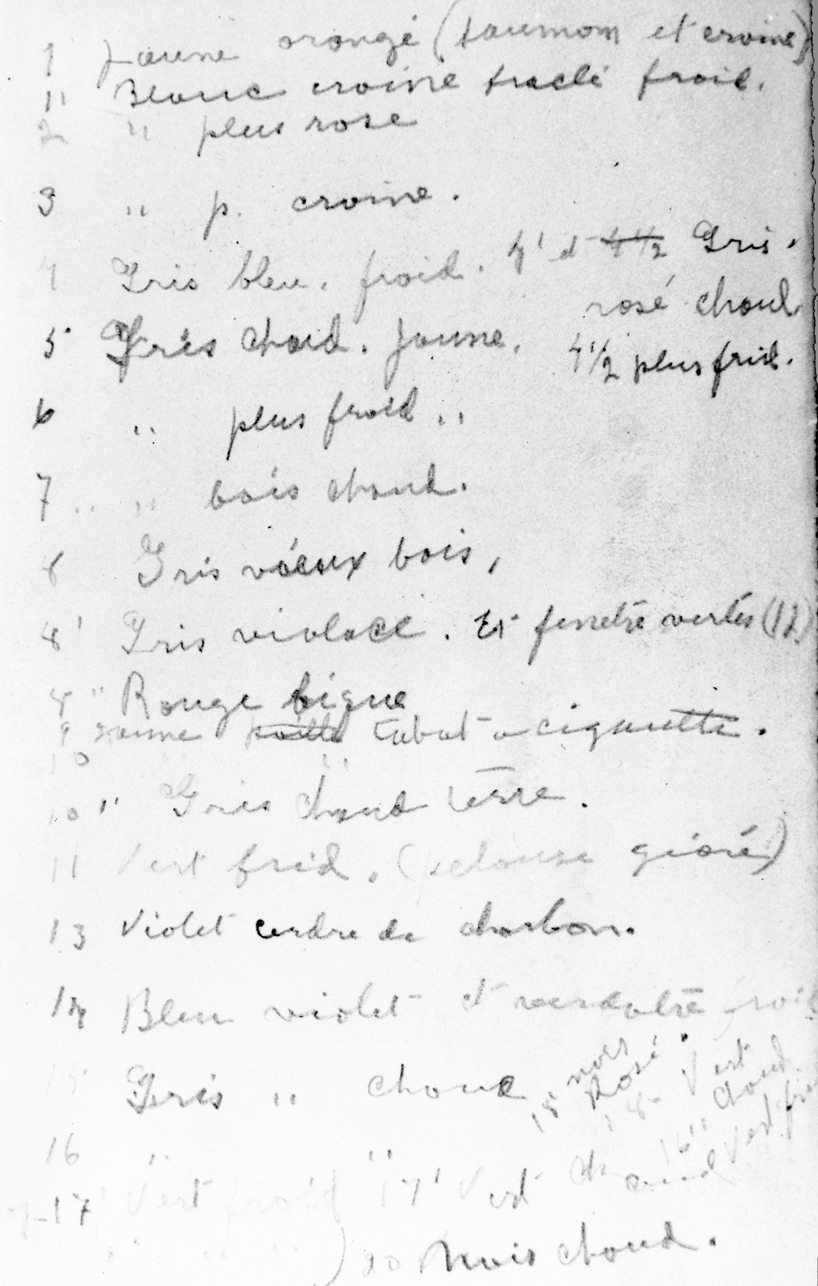 1 Jaune orangé (saumon et crome)
1' Blanc crome sale froid.
2 " plus rose
3 " p. crome.
4 Gris bleu. froid. 4' et 4 1/2 Gris.
rosé chaud
5 Gris chaud. Jaune. 4 1/2 plus froid.
6 " plus froid "
7 " " bois chaud.
8 Gris vieux bois,
8' Gris violacé. Et fenetre vertes (12)
8" Rouge bique
9 Jaune paille tabat a cigarette.
10 "
10" Gris chaud terre.
11 Vert froid. (pelouse givré)
13 Violet cendre de charbon.
14 Bleu violet et verdatre froid
15 Gris " chaud
noir
18 Rosé.
Vert
chaud
16 " "
17' Vert froid 17' Vert chaud
20 Noir chaud.